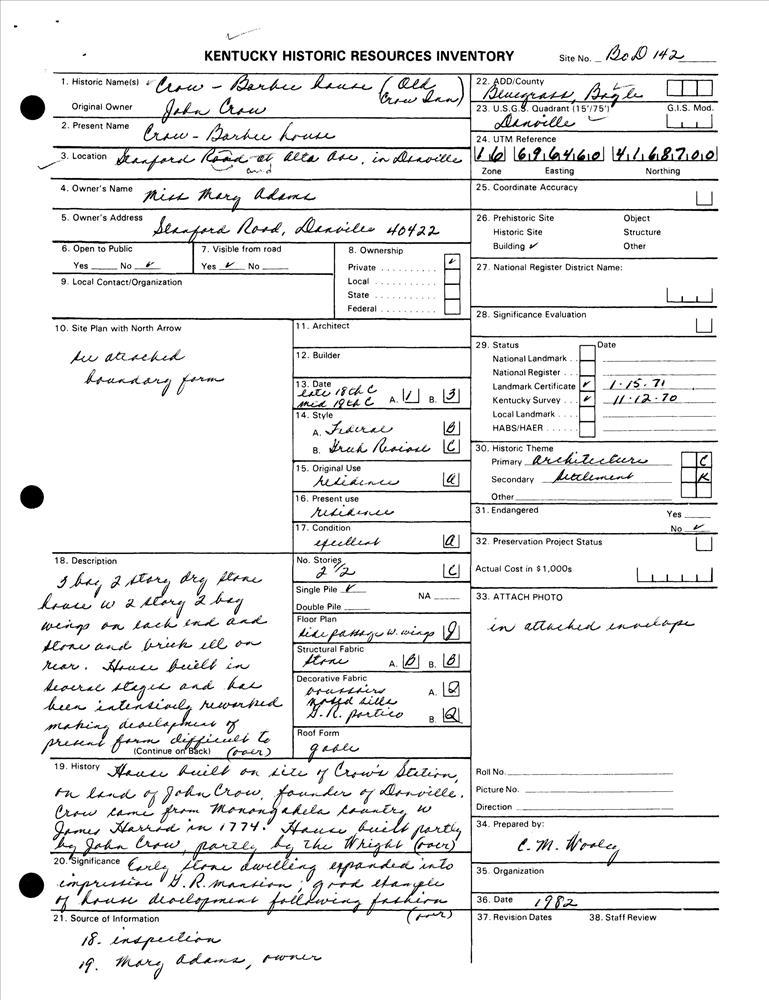 KENTUCKY HISTORIC RESOURCES INVENTORY
Site No. BoD 142
1. Historic Name(s) Crow - Barbee house (Old Crow Inn)
Original Owner John Crow
2. Present Name Crow - Barbee house
3. Location Stanford Road at and Alta Ave, in Danville
4. Owner's Name Miss Mary Adams
5. Owner's Address Stanford Road, Danville 40422
6. Open to Public
Yes No ✓
7. Visible from road
Yes ✓ No
8. Ownership
Private ✓
Local
State
Federal
9. Local Contact/Organization
10. Site Plan with North Arrow
see attached
boundary form
11. Architect
12. Builder
13. Date
late 18th C
mid 19th C A. 1 B. 3
14. Style
A. Federal B
B. Greek Revival C
15. Original Use
residence a
16. Present use
residence
17. Condition
excellent a
18. Description
3 bay 2 story dry stone
house w 2 story 2 bay
wings on each end and
stone and brick ell on
rear. House built in
several stages and has
been intensively reworked
making development of
present form difficult to
(Continue on Back) (over)
No. Stories
2 1/2 C
Single Pile ✓ NA
Double Pile
Floor Plan
side passage w. wings J
Structural Fabric
stone A. B B. B
Decorative Fabric
voussoirs A. Q
sills
G.R. portico B. Q
Roof Form
gable
19. History House built on site of Crow's Station,
on land of John Crow, founder of Danville.
Crow came from Monongahela country w
James Harrod in 1774. House built partly
by John Crow, partly by the Wright (over)
20. Significance Early stone dwelling expanded into
impressive G.R. mansion; good example
of house development following fashion
(over)
21. Source of Information
18. inspection
19. Mary Adams, owner
22. ADD/County
Bluegrass, Boyle
23. U.S.G.S. Quadrant (15'/75') G.I.S. Mod.
Danville
24. UTM Reference
16 696460 4168700
Zone Easting Northing
25. Coordinate Accuracy
26. Prehistoric Site Object
Historic Site Structure
Building ✓ Other
27. National Register District Name:
28. Significance Evaluation
29. Status Date
National Landmark
National Register
Landmark Certificate ✓ 1-15-71
Kentucky Survey ✓ 11-12-70
Local Landmark
HABS/HAER
30. Historic Theme
Primary architecture C
Secondary settlement K
Other
31. Endangered Yes
No ✓
32. Preservation Project Status
Actual Cost in $1,000s
33. ATTACH PHOTO
in attached envelope
Roll No.
Picture No.
Direction
34. Prepared by:
C. M. Wooley
35. Organization
36. Date 1982
37. Revision Dates 38. Staff Review